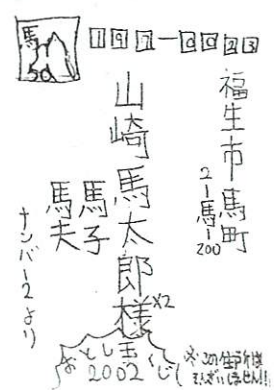 馬
50
197-0023
福生市馬町
2-馬-200
山崎馬太郎様×2
馬子
馬夫
ナンバー2より
おとし玉くじ
2002
※この住所は
そんざいしません!!